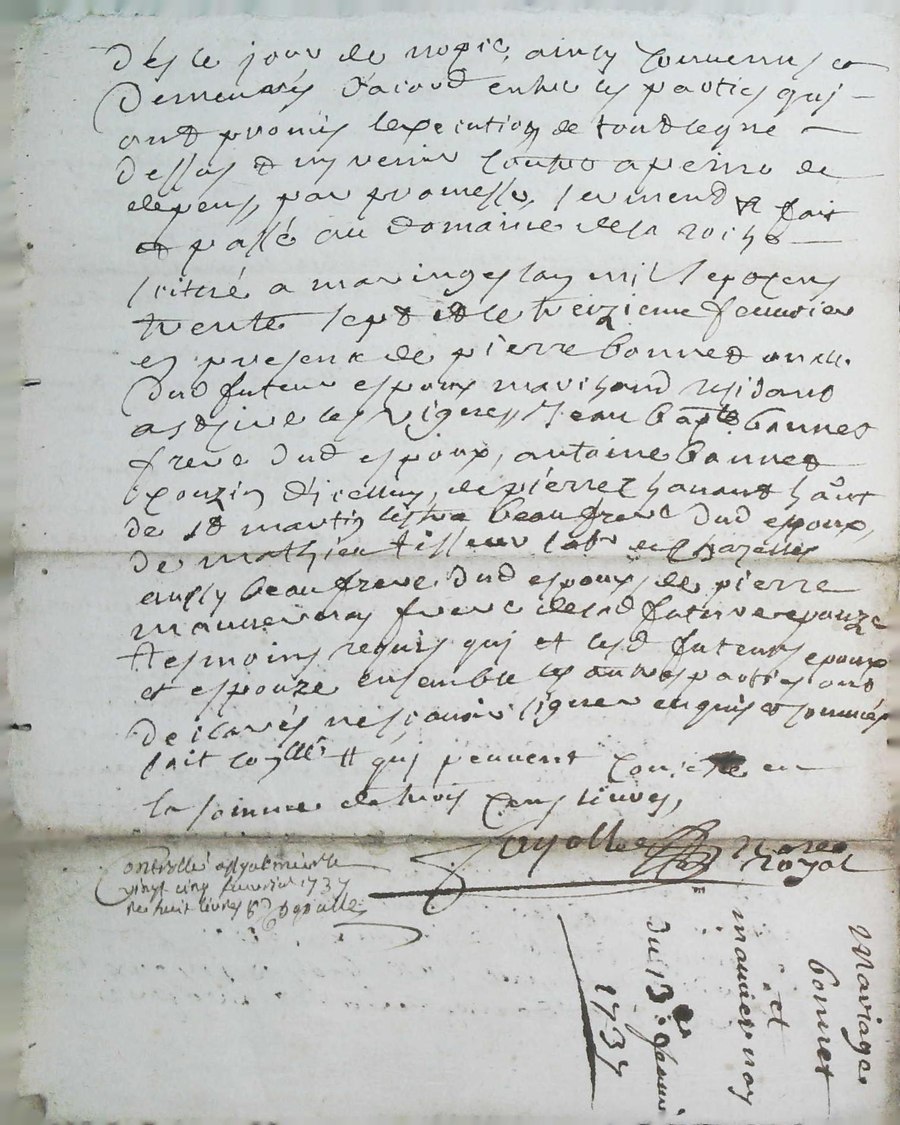 dés le jour de nopce, ainsy convenus et
Demeurés d'acord entre les parties quj
ont promis lexecution de tout legne
dessus et ny venir contre a peine de
depens, par promesse, serment &c fait
et passé au domaine de la
scitué a maringes lan mil sept cens
trente sept et le treizieme feuvrier
en presence de pierre bonnet oncle
dud futeur espoux marchand residant
a les vignes, Jean bapte bonnet
frere dud espoux, antoine bonnet
couzin d'icelluy, de pierre
de st martin lestra beaufrere dud espoux,
de mathieu tisseur labr en Chazelles
aussy beaufrere dud espoux, de pierre
mauvernay frere de lad future epouze
tesmoins requis quj et lesd futeurs epoux
et espouze ensemble les autres parties ont
declarés ne scavoir signer enquis et sommés
# quj peuvent en
la somme de trois cens livres,
royal
Controllé a st galmier le
vingt cinq feuvrier 1737
huit livres
Mariage
bonnet
et
mauvernay
du 13e feuvri
1737